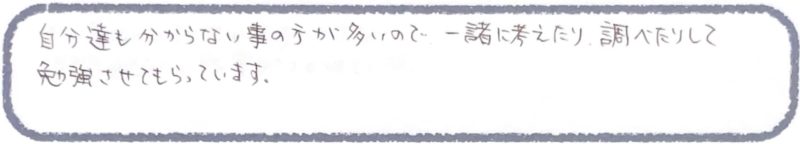 自分達も分からない事の方が多いので、一諸に考えたり、調べたりして
勉強させてもらっています。